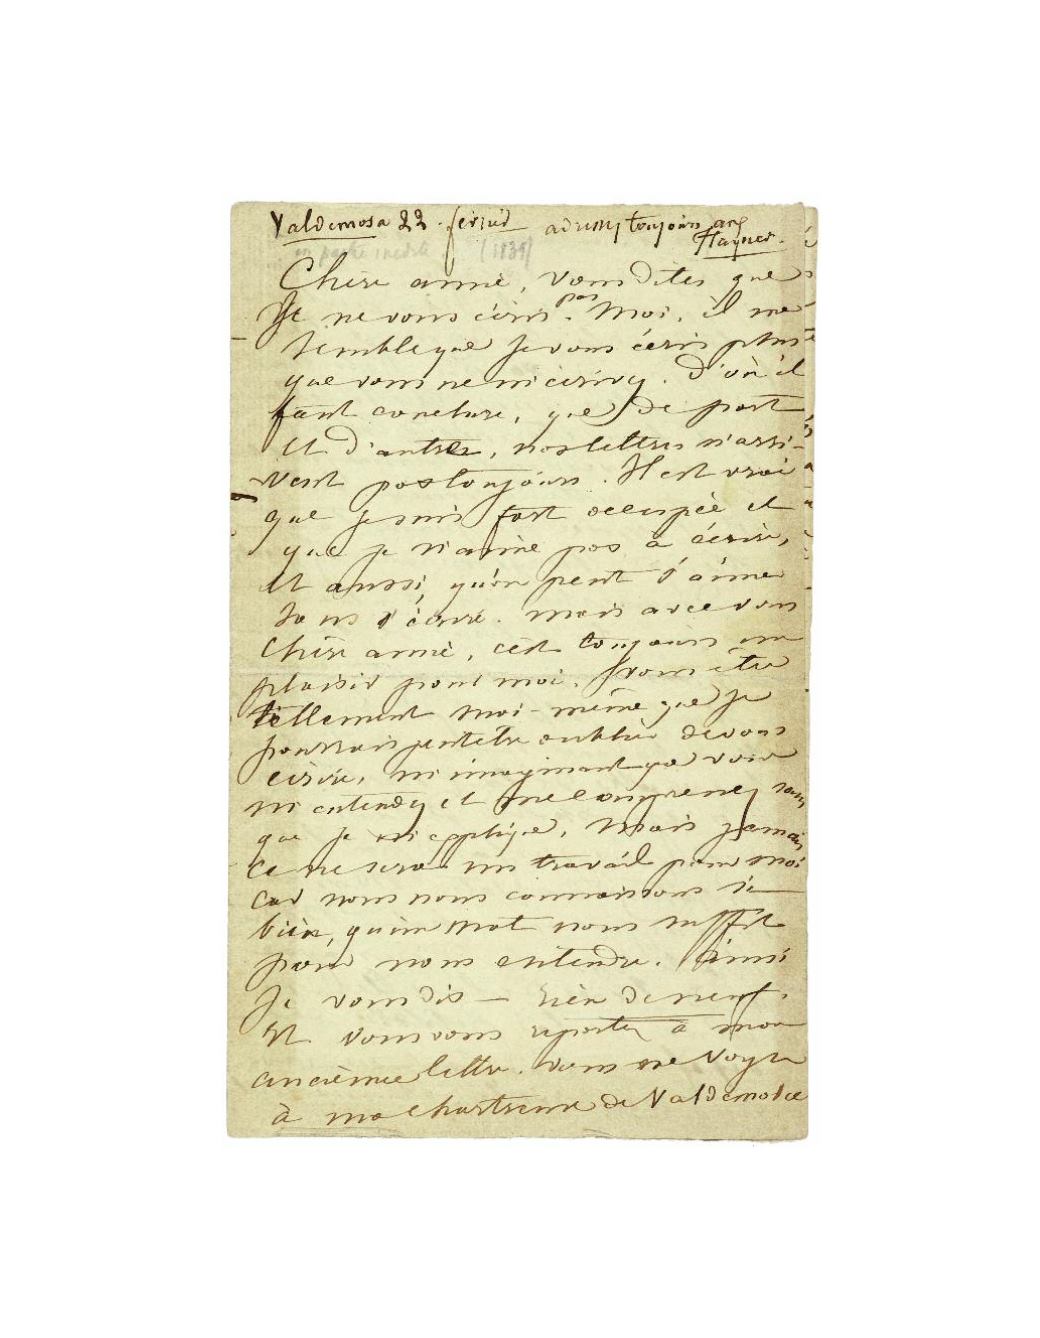 Valdemosa 22 fevrier adressez toujours aux
Flayner.
en partie inédite (1839)
Chère amie, vous dites que
Je ne vous écris pas. Moi, il me
semble que je vous écris plus
que vous ne m'écrivez. D'où il
faut conclure, que de part
et d'autre, nos lettres n'arri-
vent pas toujours. Il est vrai
que je suis fort occupée et
que je n'aime pas à écrire,
et aussi, qu'on peut s'aimer
sans s'écrire. mais avec vous
chère amie, c'est toujours un
plaisir pour moi. Vous êtes
tellement moi-même que je
pourrais peutêtre oublier de vous
écrire, m'imaginant que vous
m'entendez et me comprenez sans
que je m'explique, mais jamais
ce ne sera un travail pour moi
car nous nous connaissons si
bien, qu'un mot nous suffit
pour nous entendre. Ainsi
Je vous dis — rien de neuf.
Et vous vous reportez à mon
ancienne lettre. Vous me voyez
à ma chartreuse de Valdemosa